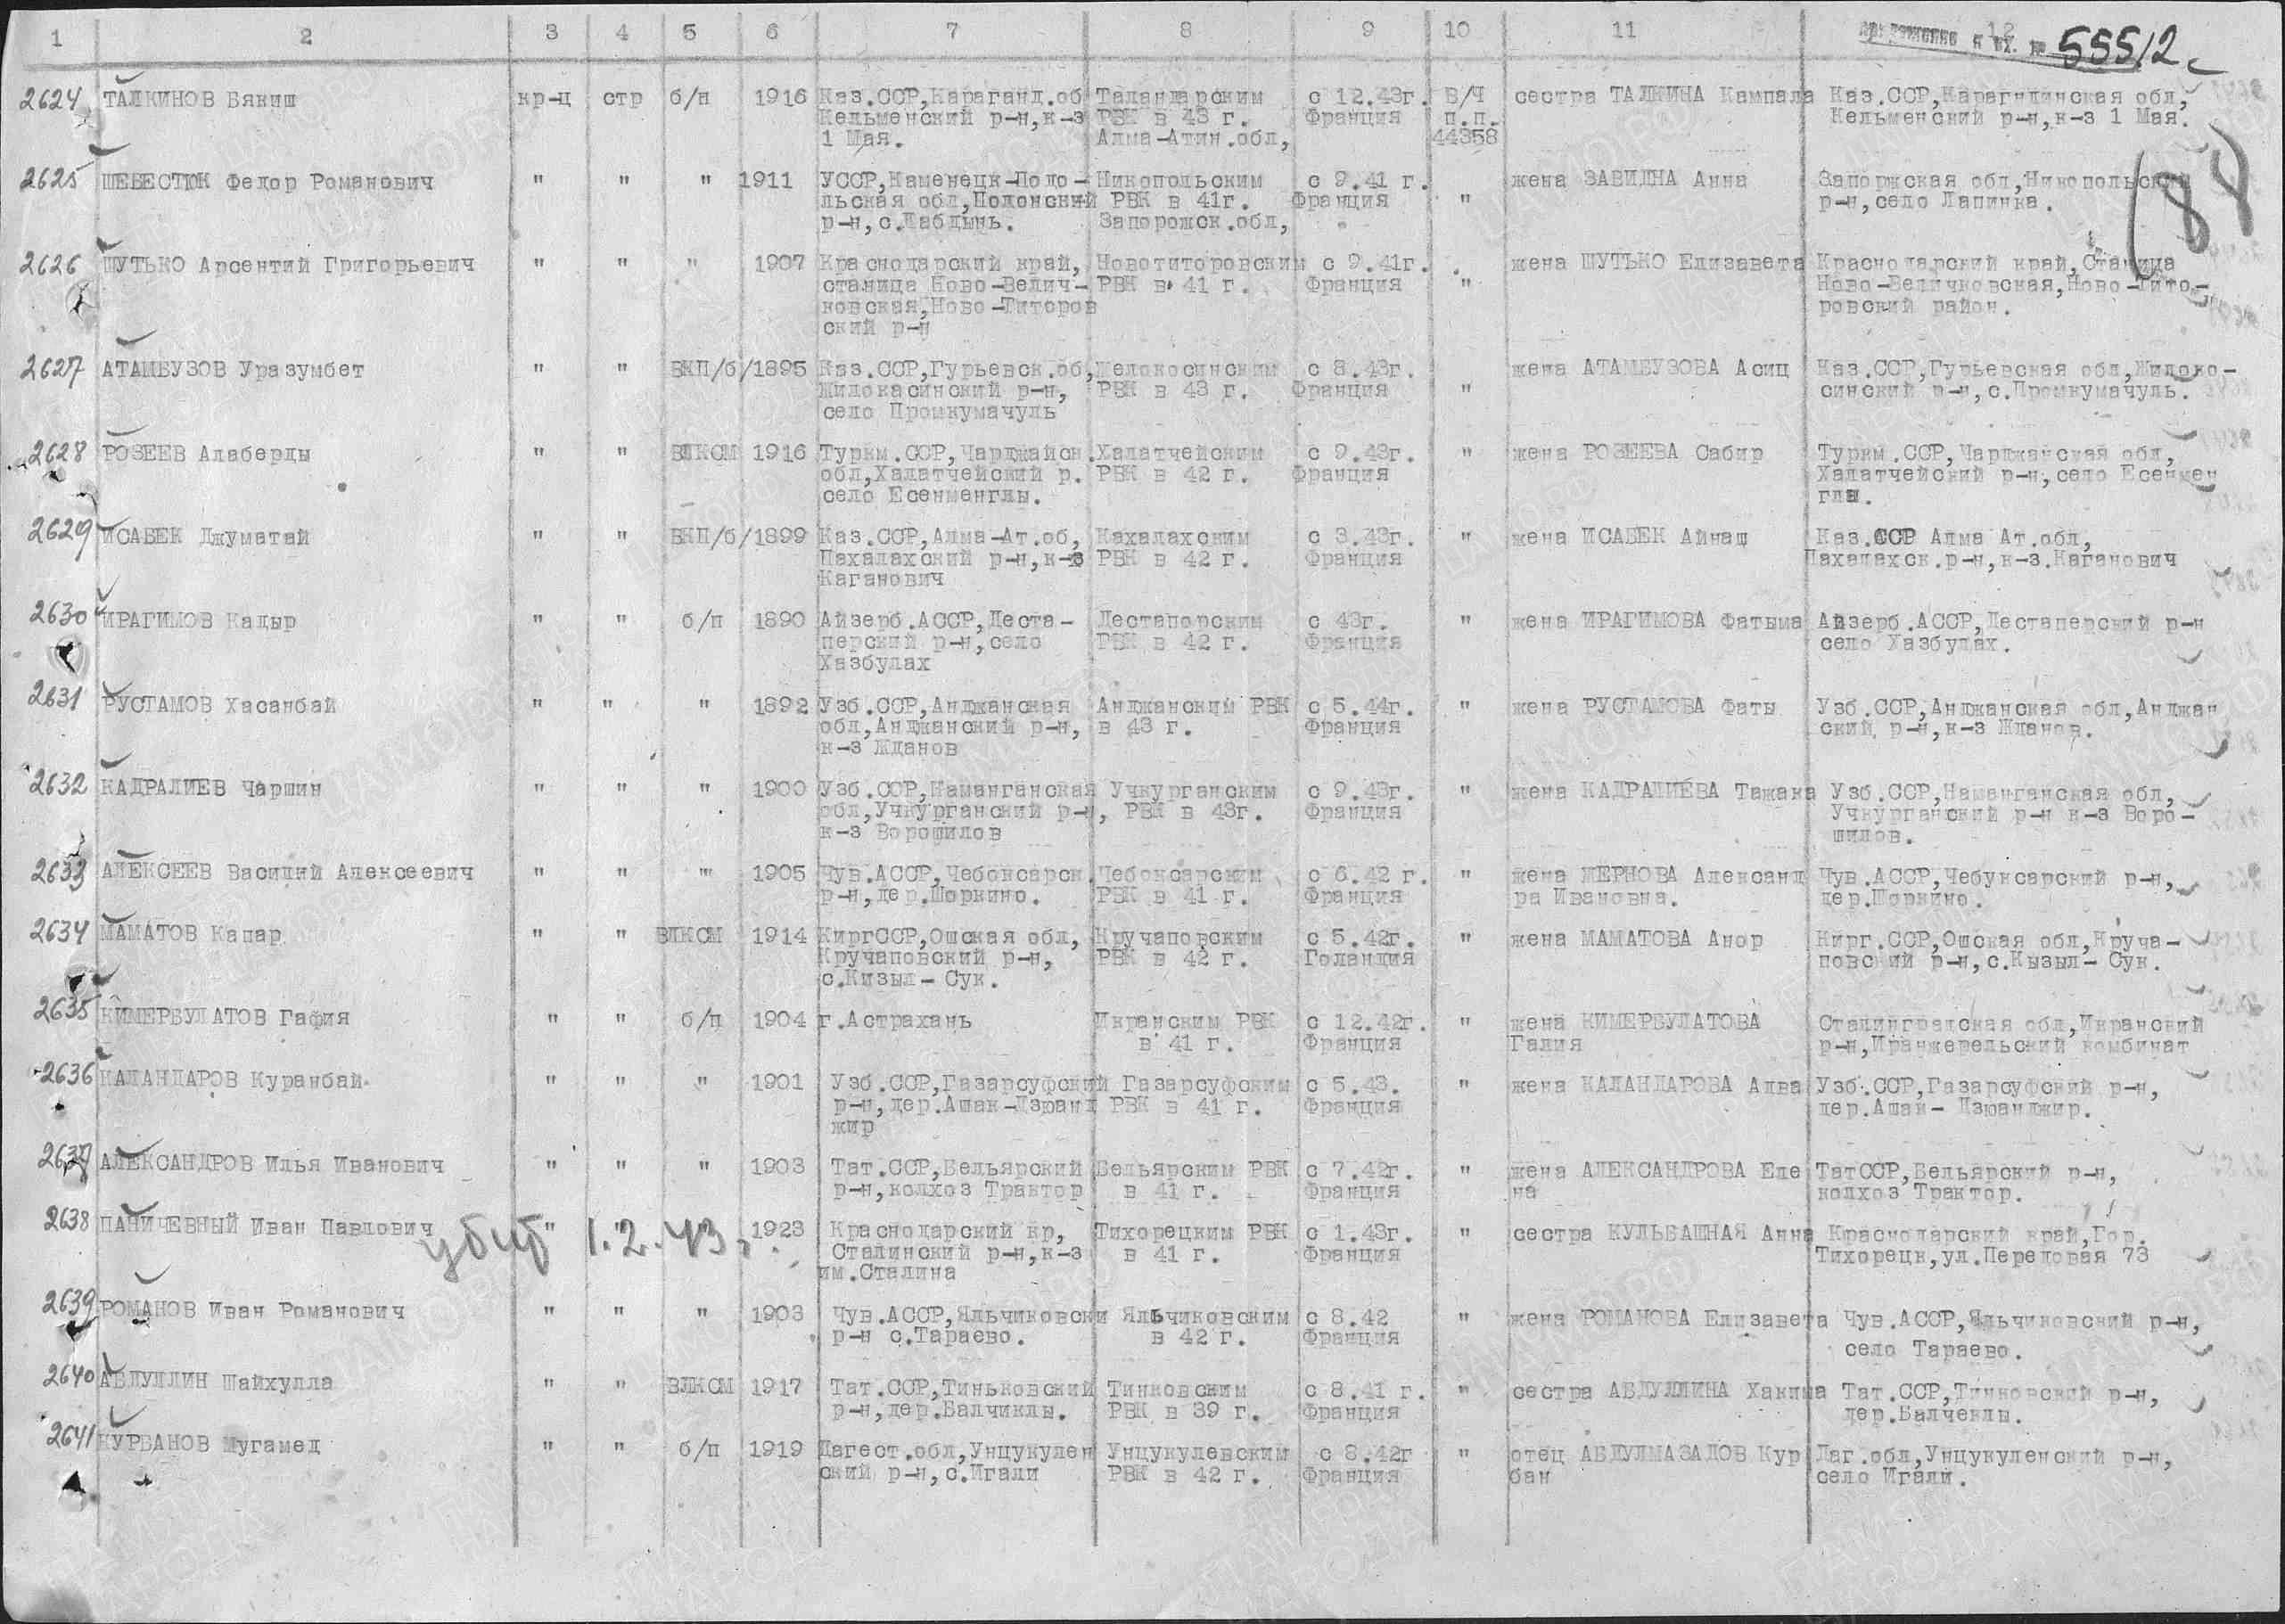 1 2 3 4 5 6 7 8 9 10 11 12
55512
84
2624 ТАЛКИНОВ Бякиш кр-ц стр б/п 1916 Каз.ССР,Караганд.об Таландарским с 12.43г. В/Ч сестра ТАЛКИНА Кампала Каз.ССР,Карагндинская обл,
Кельменский р-н,к-з РВК в 43 г. Франция п.п. Кельменский р-н,к-з 1 Мая.
1 Мая. Алма-Атин.обл, 44358
2625 ШЕБЕСТЮК Федор Романович " " " 1911 УССР,Каменецк-Подо- Никопольским с 9.41 г. жена ЗАВИДНА Анна Запоржская обл,Никопольский
льская обл,Полонский РВК в 41г. Франция " р-н,село Лапинка.
р-н,с.Лабдынь. Запорожск.обл,
2626 ШУТЬКО Арсентий Григорьевич " " " 1907 Краснодарский край, Новотиторовским с 9.41г. жена ШУТЬКО Елизавета Краснодарский край,Станица
станица Ново-Велич- РВК в 41 г. Франция " Ново-Величковская,Ново-Тито-
ковская,Ново-Титоров ровский район.
ский р-н
2627 АТАМБУЗОВ Уразумбет " " ВКП/б/ 1895 Каз.ССР,Гурьевск.об, Желокосинским с 8.43г. жена АТАМБУЗОВА Асиц Каз.ССР,Гурьевская обл,Жилоко-
Жилокасинский р-н, РВК в 43 г. Франция " синский р-н,с.Промкумачуль.
село Промкумачуль
2628 РОЗЕЕВ Алаберды " " ВЛКСМ 1916 Туркм.ССР,Чарджайск. Халатчейским с 9.43г. " жена РОЗЕЕВА Сабир Туркм.ССР,Чарджанская обл,
обл,Халатчейский р. РВК в 42 г. Франция Халатчейский р-н,село Есенмен
село Есенменглы. глы.
2629 ИСАБЕК Джуматай " " ВКП/б/ 1899 Каз.ССР,Алма-Ат.об, Кахалахским с 3.43г. " жена ИСАБЕК Айнаш Каз.ССР Алма Ат.обл,
Пахалахский р-н,к-з РВК в 42 г. Франция Пахалахск.р-н,к-з.Каганович
Каганович
2630 ИРАГИМОВ Кадыр " " б/п 1890 Айзерб.АССР,Деста- Дестаперским с 43г. " жена ИРАГИМОВА Фатыма Айзерб.АССР,Дестаперский р-н
перский р-н,село РВК в 42 г. Франция село Хазбулах.
Хазбулах
2631 РУСТАМОВ Хасанбай " " " 1892 Узб.ССР,Анджанская Анджанский РВК с 5.44г. " жена РУСТАМОВА Фаты Узб.ССР,Анджанская обл,Анджан
обл,Анджанский р-н, в 43 г. Франция ский р-н,к-з Жданов.
к-з Жданов
2632 КАДРАЛИЕВ Чаршин " " " 1900 Узб.ССР,Наманганская Учкурганским с 9.43г. " жена КАДРАЛИЕВА Тажака Узб.ССР,Наманганская обл,
обл,Учкурганский р-н, РВК в 43г. Франция Учкурганский р-н к-з Воро-
к-з Ворошилов шилов.
2633 АЛЕКСЕЕВ Василий Алексеевич " " " 1905 Чув.АССР,Чебоксарск. Чебоксарским с 6.42 г. " жена ЖЕРНОВА Александ Чув.АССР,Чебуксарский р-н,
р-н,дер.Шоркино. РВК в 41 г. Франция ра Ивановна. дер.Шоркино.
2634 МАМАТОВ Капар " " ВЛКСМ 1914 КиргССР,Ошская обл, Кручаповским с 5.42г. " жена МАМАТОВА Анор Кирг.ССР,Ошская обл,Круча-
Кручаповский р-н, РВК в 42 г. Голандия повский р-н,с.Кызыл- Сук.
с.Кизыл- Сук.
2635 КИМЕРБУЛАТОВ Гафия " " б/п 1904 г.Астрахань Икранским РВК с 12.42г. " жена КИМЕРБУЛАТОВА Сталинградская обл,Икранский
в 41 г. Франция Галия р-н,Иранжерельский комбинат
2636 КАЛАНДАРОВ Куранбай " " " 1901 Узб.ССР,Газарсуфский Газарсуфским с 5.43. " жена КАЛАНДАРОВА Адва Узб.ССР,Газарсуфский р-н,
р-н,дер.Ашак-Дзюанд РВК в 41 г. Франция дер.Ашак- Дзюанджир.
жир
2637 АЛЕКСАНДРОВ Илья Иванович " " " 1903 Тат.ССР,Бельярский Бельярским РВК с 7.42г. " жена АЛЕКСАНДРОВА Еле ТатССР,Бельярский р-н,
р-н,колхоз Трактор в 41 г. Франция на колхоз Трактор.
2638 ПАНИЧЕВНЫЙ Иван Павлович убит 1.2.43г. 1923 Краснодарский кр, Тихорецким РВК с 1.43г. " сестра КУЛЬБАШНАЯ Анна Краснодарский край,Гор.
Сталинский р-н,к-з в 41 г. Франция Тихорецк,ул.Передовая 73
им.Сталина
2639 РОМАНОВ Иван Романович " " " 1903 Чув.АССР,Яльчиковски Яльчиковским с 8.42 " жена РОМАНОВА Елизавета Чув.АССР,Яльчиковский р-н,
р-н с.Тараево. в 42 г. Франция село Тараево.
2640 АБДУЛЛИН Шайхулла " " ВЛКСМ 1917 Тат.ССР,Тиньковский Тинковским с 8.41 г. " сестра АБДУЛЛИНА Хакима Тат.ССР,Тинковский р-н,
р-н,дер.Балчиклы. РВК в 39 г. Франция дер.Балчеклы.
2641 КУРБАНОВ Мугамед " " б/п 1919 Дагест.обл,Унцукулен Унцукулевским с 8.42г " отец АБДУЛМАЗАДОВ Кур Даг.обл,Унцукуленский р-н,
ский р-н,с.Игали РВК в 42 г. Франция бан село Игали.